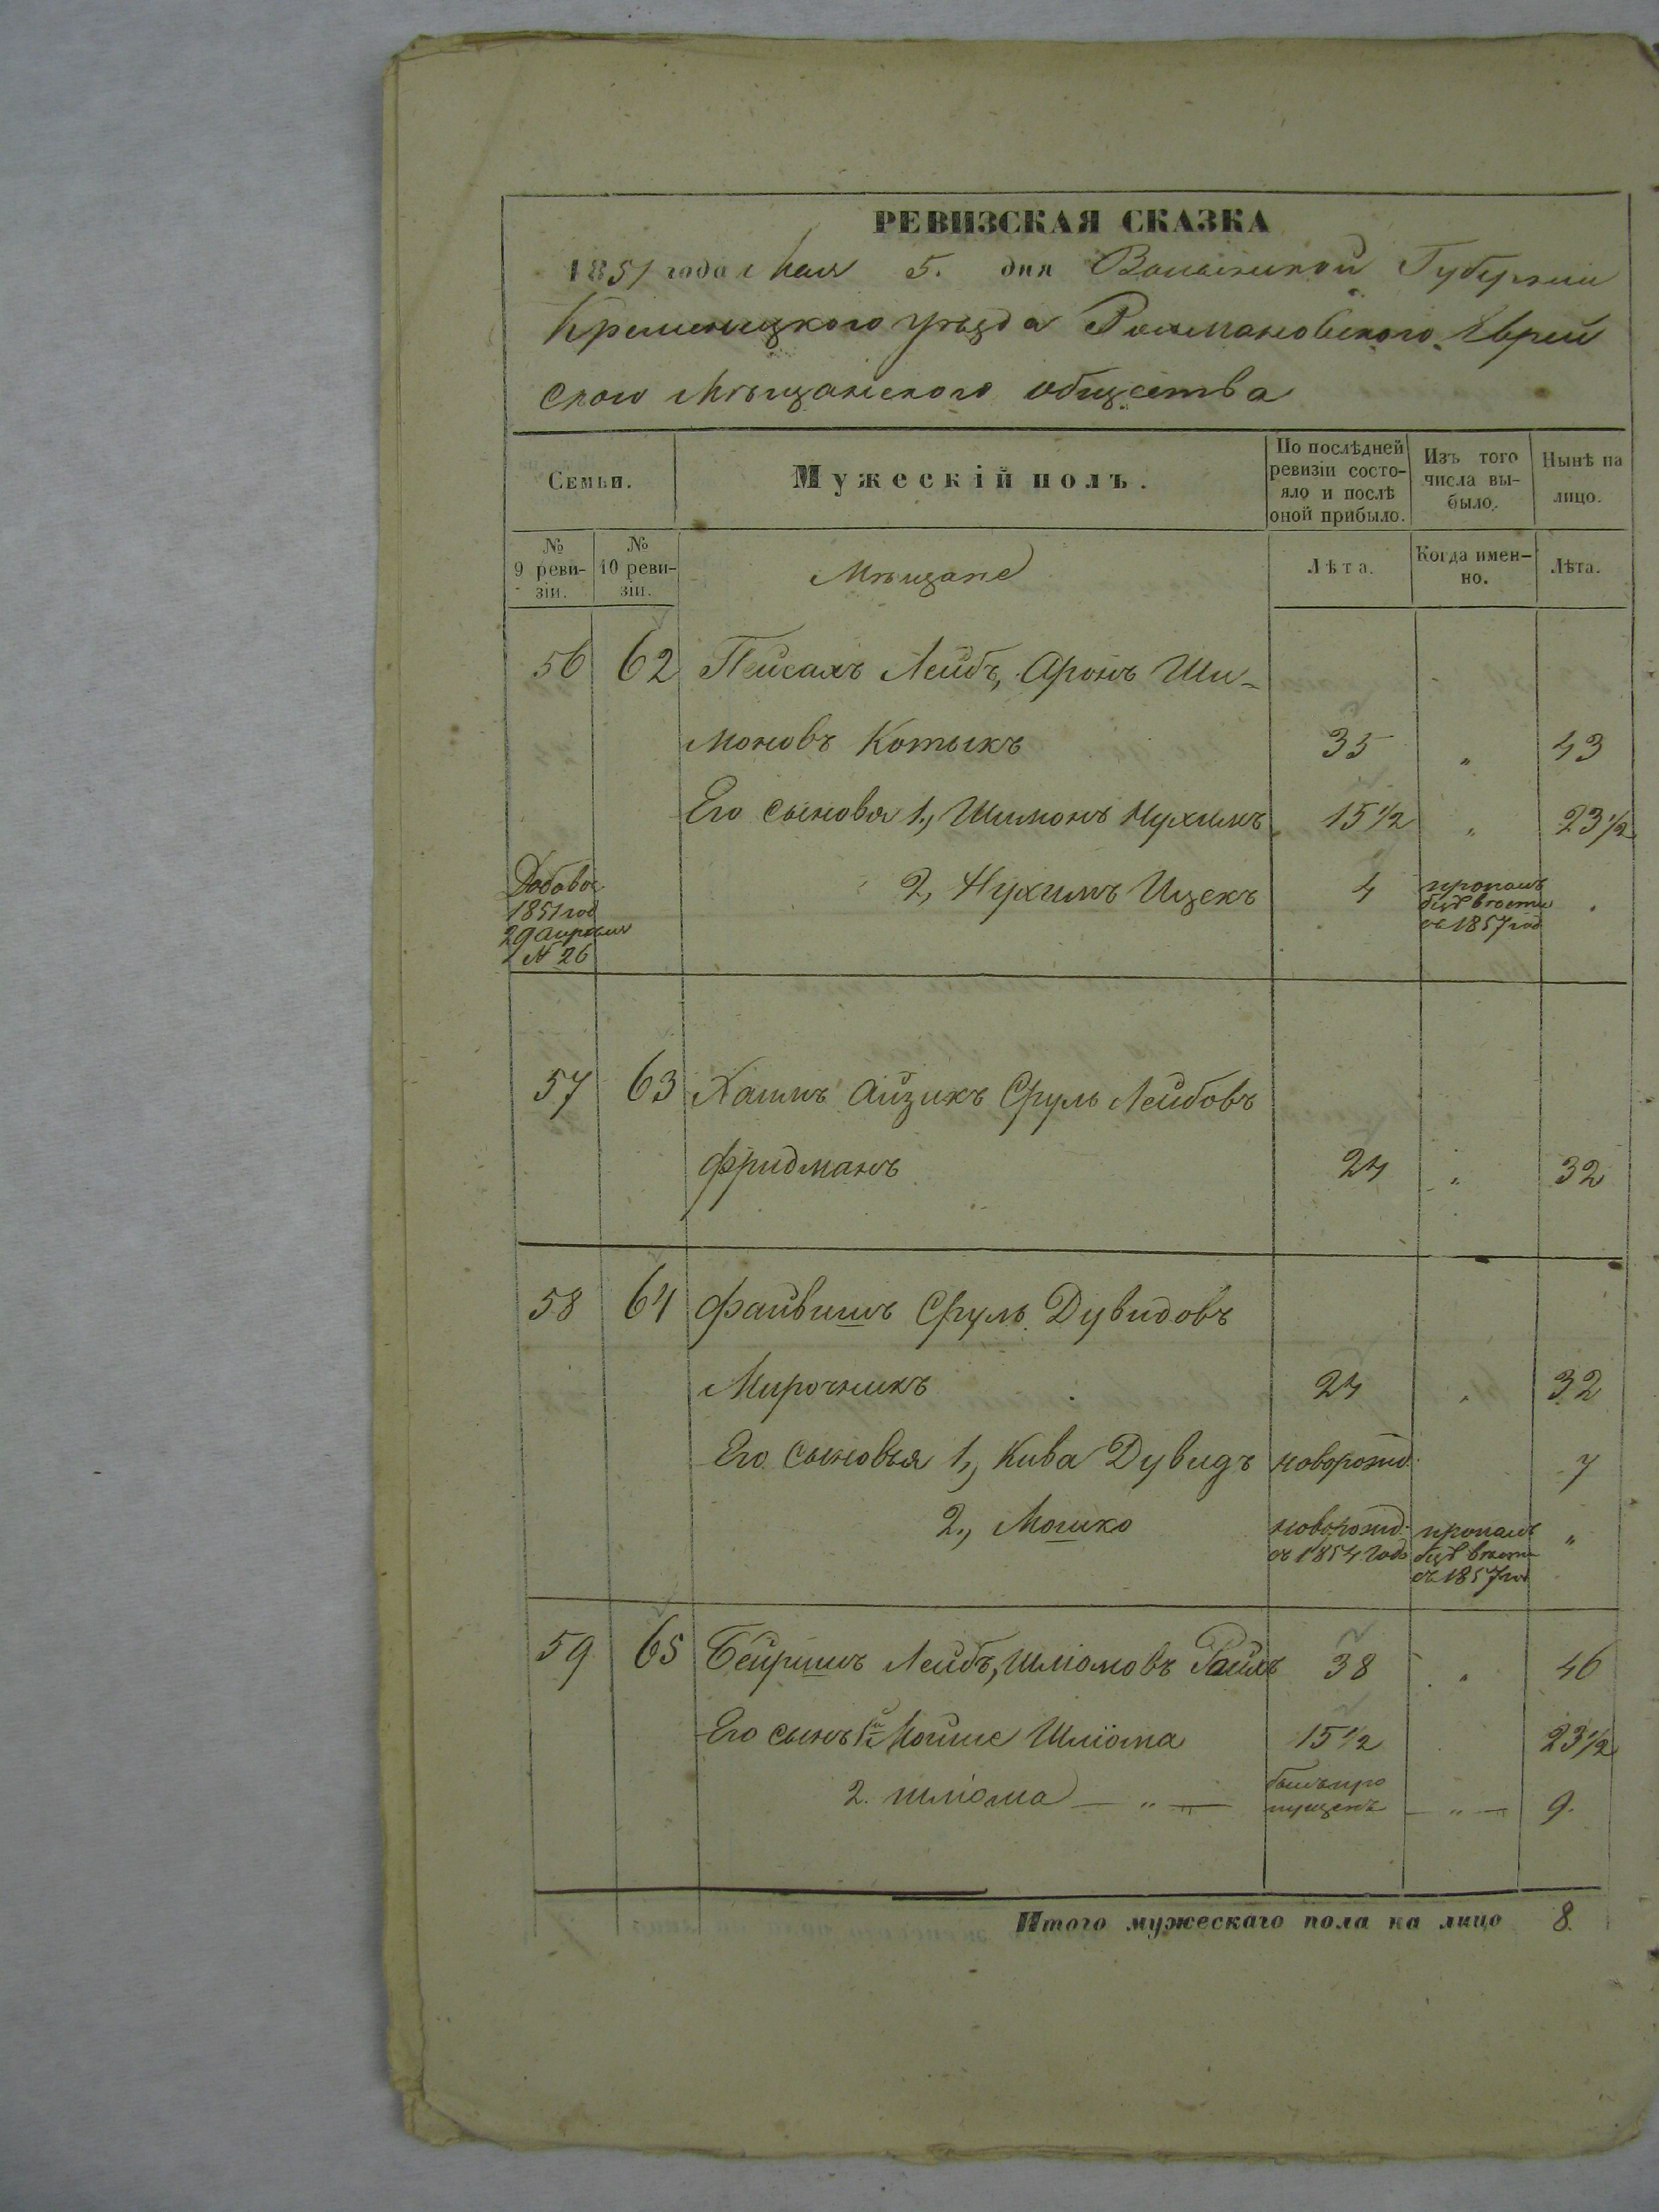 РЕВИЗСКАЯ СКАЗКА
1851 года Мая 5. дня Волынской Губерніи
Кременецкого уѣзда Рахмановского Еврей
ского Мѣщанского общества
Семьи.
Мужескій полъ.
По послѣдней ревизіи состояло и послѣ оной прибыло.
Изъ того числа выбыло.
Нынѣ на лицо.
№ 9 ревизіи.
№ 10 ревизіи.
Мѣщане
Лѣта.
Когда именно.
Лѣта.
56 62 Пейсахъ Лейбъ, Аронъ Ши-
моновъ Котыкъ 35 " 43
Его сыновя 1, Шимонъ Нухимъ 15 1/2 " 23 1/2
2, Нухимъ Ицекъ 4 пропалъ
безъ вѣсти
съ 1857 год
Добавоч.
1851 год
29 Апрѣля
№ 26
57 63 Хаимъ Айзикъ Сруль Лейбовъ
Фридманъ 24 " 32
58 64 Файвишъ Сруль Дувидовъ
Мирочникъ 24 " 32
Его сыновья 1, Кива Дувидъ новорожд. 7
2, Мошко новорожд. съ 1854 года пропалъ
безъ вѣсти
съ 1857 год "
59 65 Бейришъ Лейбъ, Шліомовъ Райхъ 38 " 46
Его сынъ 1й Мойше Шліома 15 1/2 23 1/2
2. Шліома — " — былъ про
пущенъ — " — 9.
Итого мужескаго пола на лицо 8.